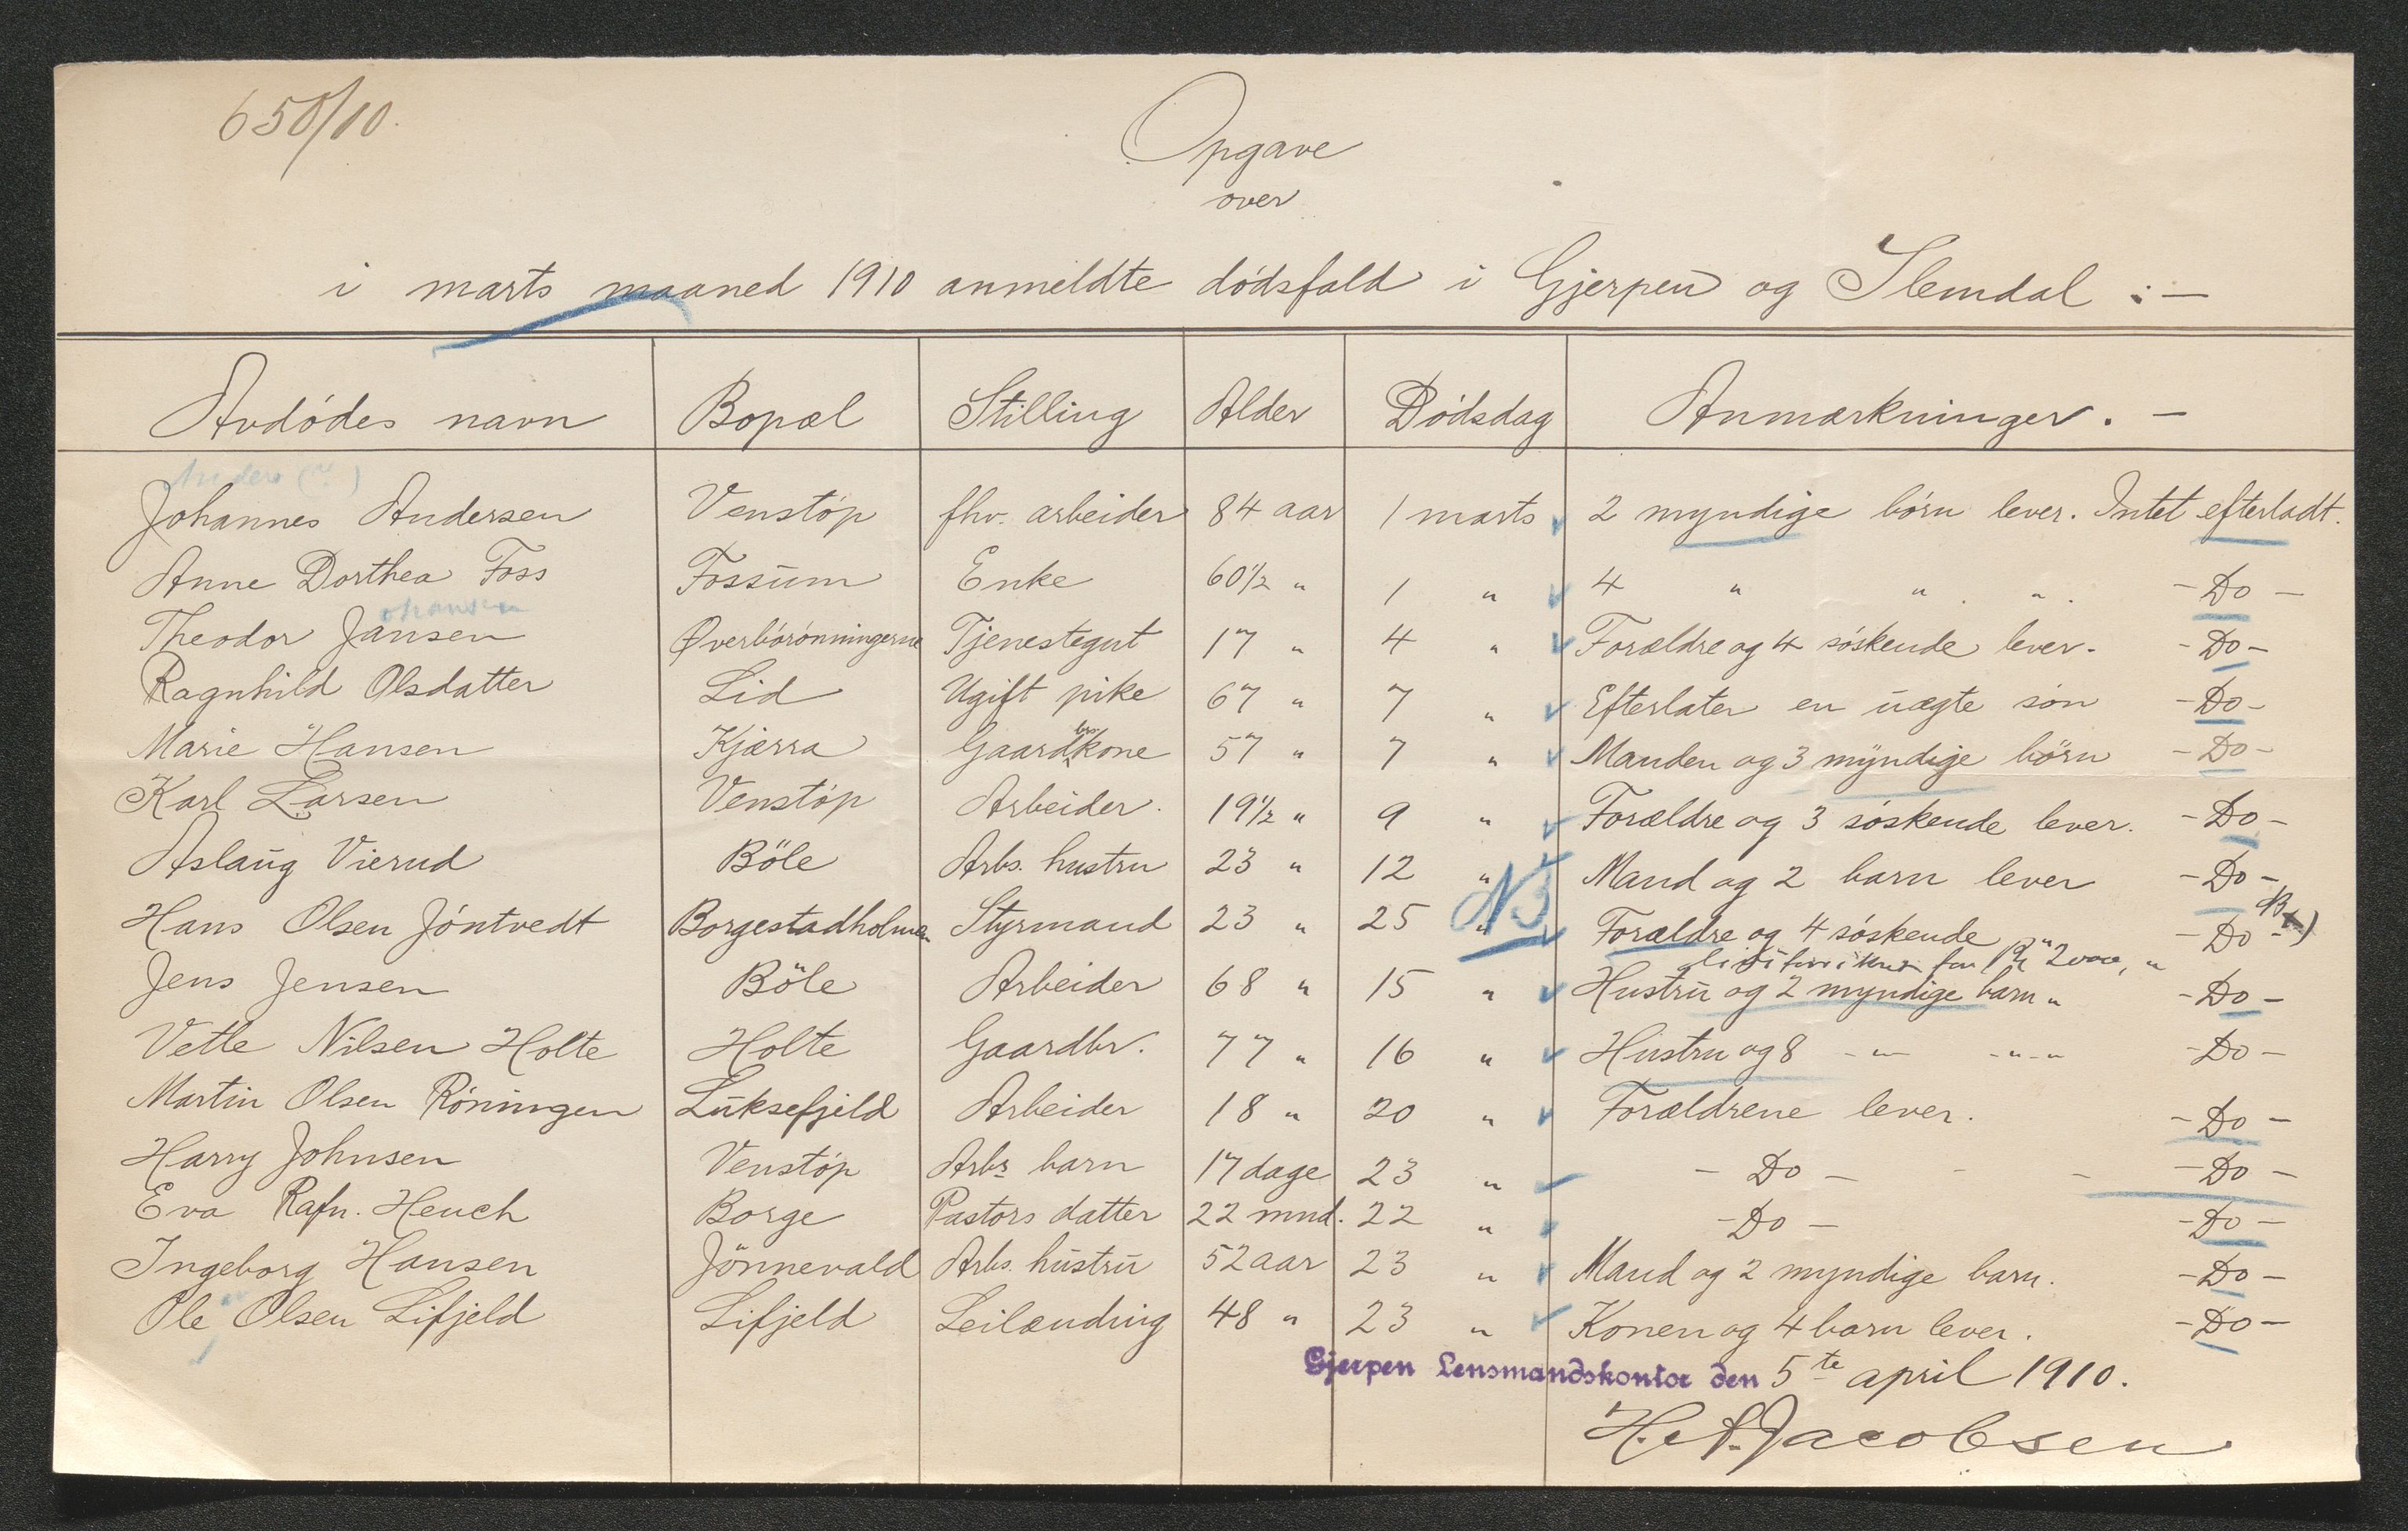 650/10.
Opgave
over
i marts maaned 1910 anmeldte dødsfald i Gjerpen og Slemdal :-
Avdødes navn Bopæl Stilling Alder Dødsdag Anmærkninger. -
Anders (?)
Johannes Andersen Venstøp fhv. arbeider 84 aar 1 marts 2 myndige børn lever. Intet efterladt.
Anne Dorthea Foss Fossum Enke 60 1/2 " 1 " 4 " " . " . - Do -
ohansen
Theodor Jansen Øverbörønningerne Tjenestegut 17 " 4 " Forældre og 4 søskende lever. - Do -
Ragnhild Olsdatter Lid Ugift pike 67 " 7 " Efterlater en uægte søn - Do -
Marie Hansen Kjærra Gaardbrs kone 57 " 7 " Manden og 3 myndige børn - Do -
Karl Larsen Venstøp Arbeider. 19 1/2 " 9 " Forældre og 3 søskende lever. - Do -
Aslaug Vierud Böle Arbs. hustru 23 " 12 " Mand og 2 barn lever - Do -
Hans Olsen Jøntvedt Borgestadholmen Styrmand 23 " 25 " NB Forældre og 4 søskende - Do -
for Kr 2000,"
Jens Jensen Böle Arbeider 68 " 15 " Hustru og 2 myndige barn " - Do -
Vetle Nilsen Holte Holte Gaardbr. 77 " 16 " Hustru og 8 - " - - " - " - Do -
Martin Olsen Röningen Luksefjeld Arbeider 18 " 20 " Forældrene lever. - Do -
Harry Johnsen Venstøp Arbs barn 17 dage 23 " - Do - - - - Do -
Eva Rafn. Heuch Borge Pastors datter 22 mnd. 22 " - Do - - Do -
Ingeborg Hansen Jönnevald Arbs. hustru 52 aar 23 " Mand og 2 myndige barn. - Do -
Ole Olsen Lifjeld Lifjeld Leilænding 48 " 23 " Konen og 4 barn lever. - Do -
Gjerpen Lensmandskontor den 5te april 1910.
H. A. Jacobsen